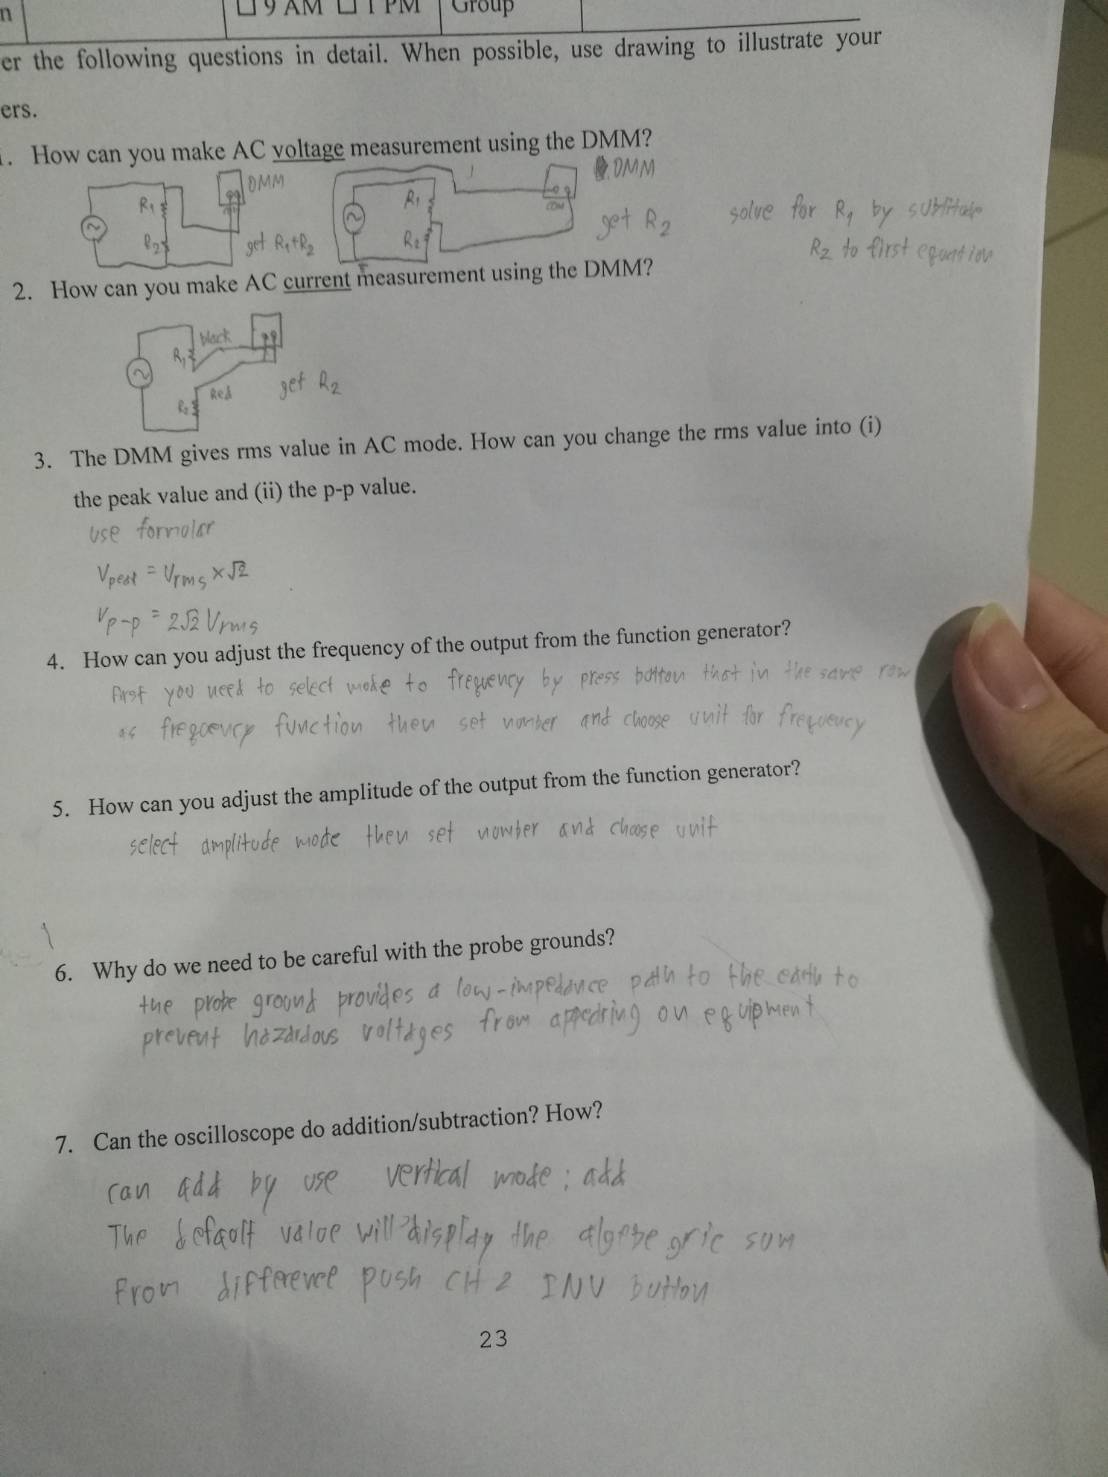 n
□ 9 AM □ 1 PM Group
er the following questions in detail. When possible, use drawing to illustrate your
ers.
. How can you make AC voltage measurement using the DMM?
DMM
R1
R2
get R1+R2
DMM
R1
R2
COM
get R2
solve for R1 by
R2 to first equation
2. How can you make AC current measurement using the DMM?
R1
black
R2
Red
get R2
3. The DMM gives rms value in AC mode. How can you change the rms value into (i)
the peak value and (ii) the p-p value.
use formolar
Vpeak = Vrms × √2
Vp-p = 2√2 Vrms
4. How can you adjust the frequency of the output from the function generator?
first you need to select mode to frequency by press botton that in the same row
as freqcevcy function then set nomber and choose unit for frequency
5. How can you adjust the amplitude of the output from the function generator?
select amplitude mode then set nomber and choose unit
6. Why do we need to be careful with the probe grounds?
the probe ground provides a low-impedance path to the earth to
prevent hazardous voltages from appearing on equipment
7. Can the oscilloscope do addition/subtraction? How?
can add by use vertical mode : add
The defaolt value will display the algebe gric sum
From difference push CH 2 INV button
23